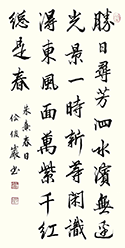 勝日尋芳泗水濱無邊
光景一時新等閒識
得東風面萬紫千紅
總是春
朱熹春日